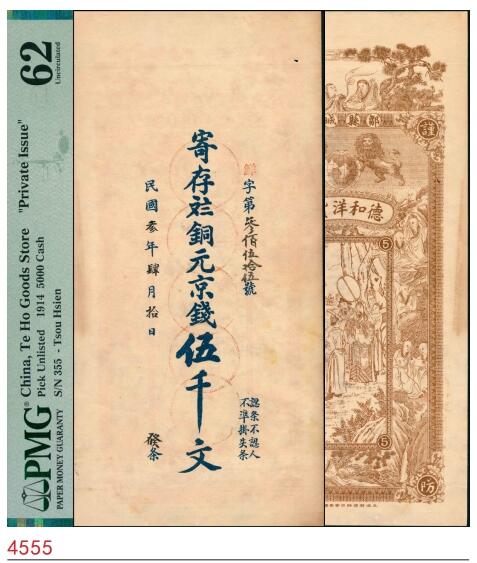 PMG
PAPER MONEY GUARANTY
China, Te Ho Goods Store "Private Issue"
Pick Unlisted 1914 5000 Cash
S/N 355 - Tsou Hsien
62
Uncirculated
字第叄佰伍拾伍號
寄存社銅元京錢伍千文
民國叁年肆月拾日
認条不認人
不準掛失条
發条
鄒縣城
謹
德和洋
5
5
防
4555